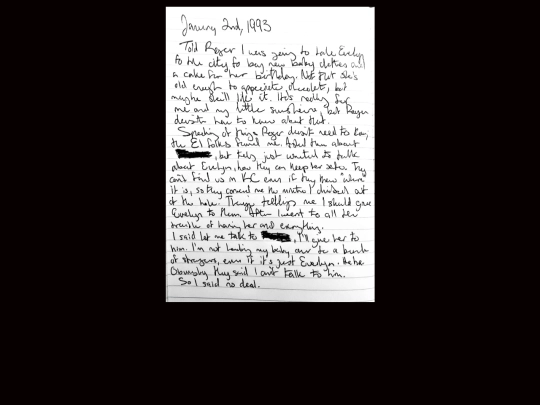 January 2nd, 1993
Told Roger I was going to take Evelyn
to the city to buy new baby clothes and
a cake for her birthday. Not that she's
old enough to appreciate chocolate, but
maybe she'll like it. It's really for
me and my little sunshine, but Roger
doesn't have to know about that.
Speaking of things Roger doesn't need to know,
the El folks found me. Asked them about
, but they just wanted to talk
about Evelyn, how they can keep her safe. They
can't find us in KC even if they knew where
it is, so they cornered me the minute I
of the hole. They're telling me I should give
Evelyn to them. After I went to all the
trouble of having her and everything.
I said let me talk to , I'll give her to
him. I'm not handing my baby over to a bunch
of strangers, even if it's just Evelyn.
Obviously they said I can't talk to him.
So I said no deal.